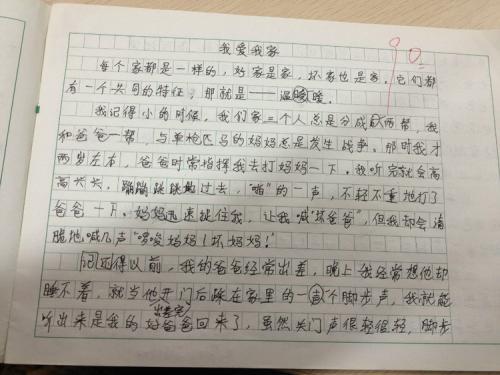 我爱我家
90
每个家都是一样的，好家是家，坏家也是家。它们都
有一个共同的特征，那就是——温暖暖。
我记得小的时候，我们家三个人总是分成两帮，我
和爸爸一帮，与单枪匹马的妈妈总是发生战争。那时我才
两岁左右，爸爸时常指挥我去打妈妈一下。我听完就会高
高兴兴，蹦蹦跳跳地过去，“啪”的一声，不轻不重地打了
爸爸一下。妈妈迅速捉住我，让我喊“坏爸爸”，但我却会清
脆地喊几声“啰唆妈妈！坏妈妈！”
记得以前，我的爸爸经常出差，晚上我经常想他却
睡不着，就当他开门后踩在家里的一声个脚步声，我就能
听出来是我的好爸爸回来了，虽然关门声很轻很轻，脚步
出差完